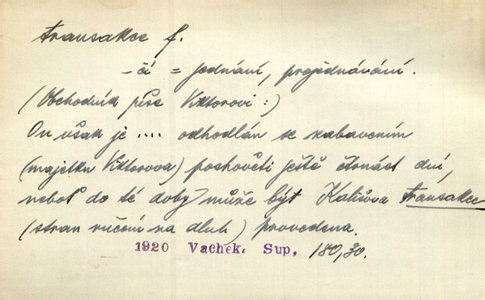 transakce f.
– čí = jednání, projednávání.
(Obchodník píše Viktorovi :)
On však je .... odhodlán se zabavením
(majetku Viktorova) poshověti ještě čtrnáct dní,
neboť do té doby může být Kališova transakce
(stran ručení na dluh) provedena.
1920 Vachek, Sup, 180,30.